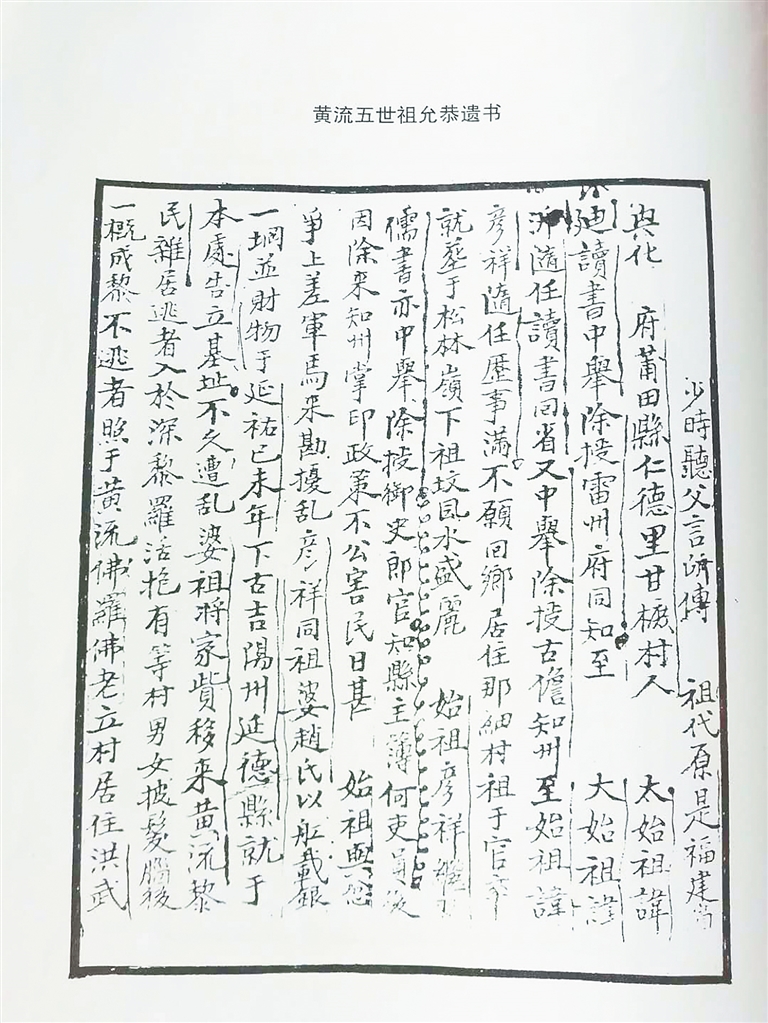 黄流五世祖允恭遗书
少時聽父言所傳 祖代原是福建省
興化 府莆田縣仁德里甘椴村人 太始祖諱
迪讀書中舉除授雷州府同知至 大始祖諱
沂隨任讀書回省又中舉除授古儋知州至始祖諱
彦祥隨任歷事滿不願回鄉居住那細村祖于官卒
就塟于松林嶺下祖坟風水盛麗 始祖彦祥繼
儒書亦中舉除授御史郎官知縣主簿何吏員後
因除來知州掌印政策不公害民日甚 始祖與
爭上差軍馬來勘擾乱彦祥同祖婆趙氏以舡載銀
一埛並財物于延祐已未年下古吉陽州延德縣就于
本處告立基址不久遭乱婆祖將家貲移來黄流黎
民雜居逃者入於深黎羅活抱有等村男女披髮腦後
一概成黎不逃者照于黄流佛羅佛老立村居住洪武